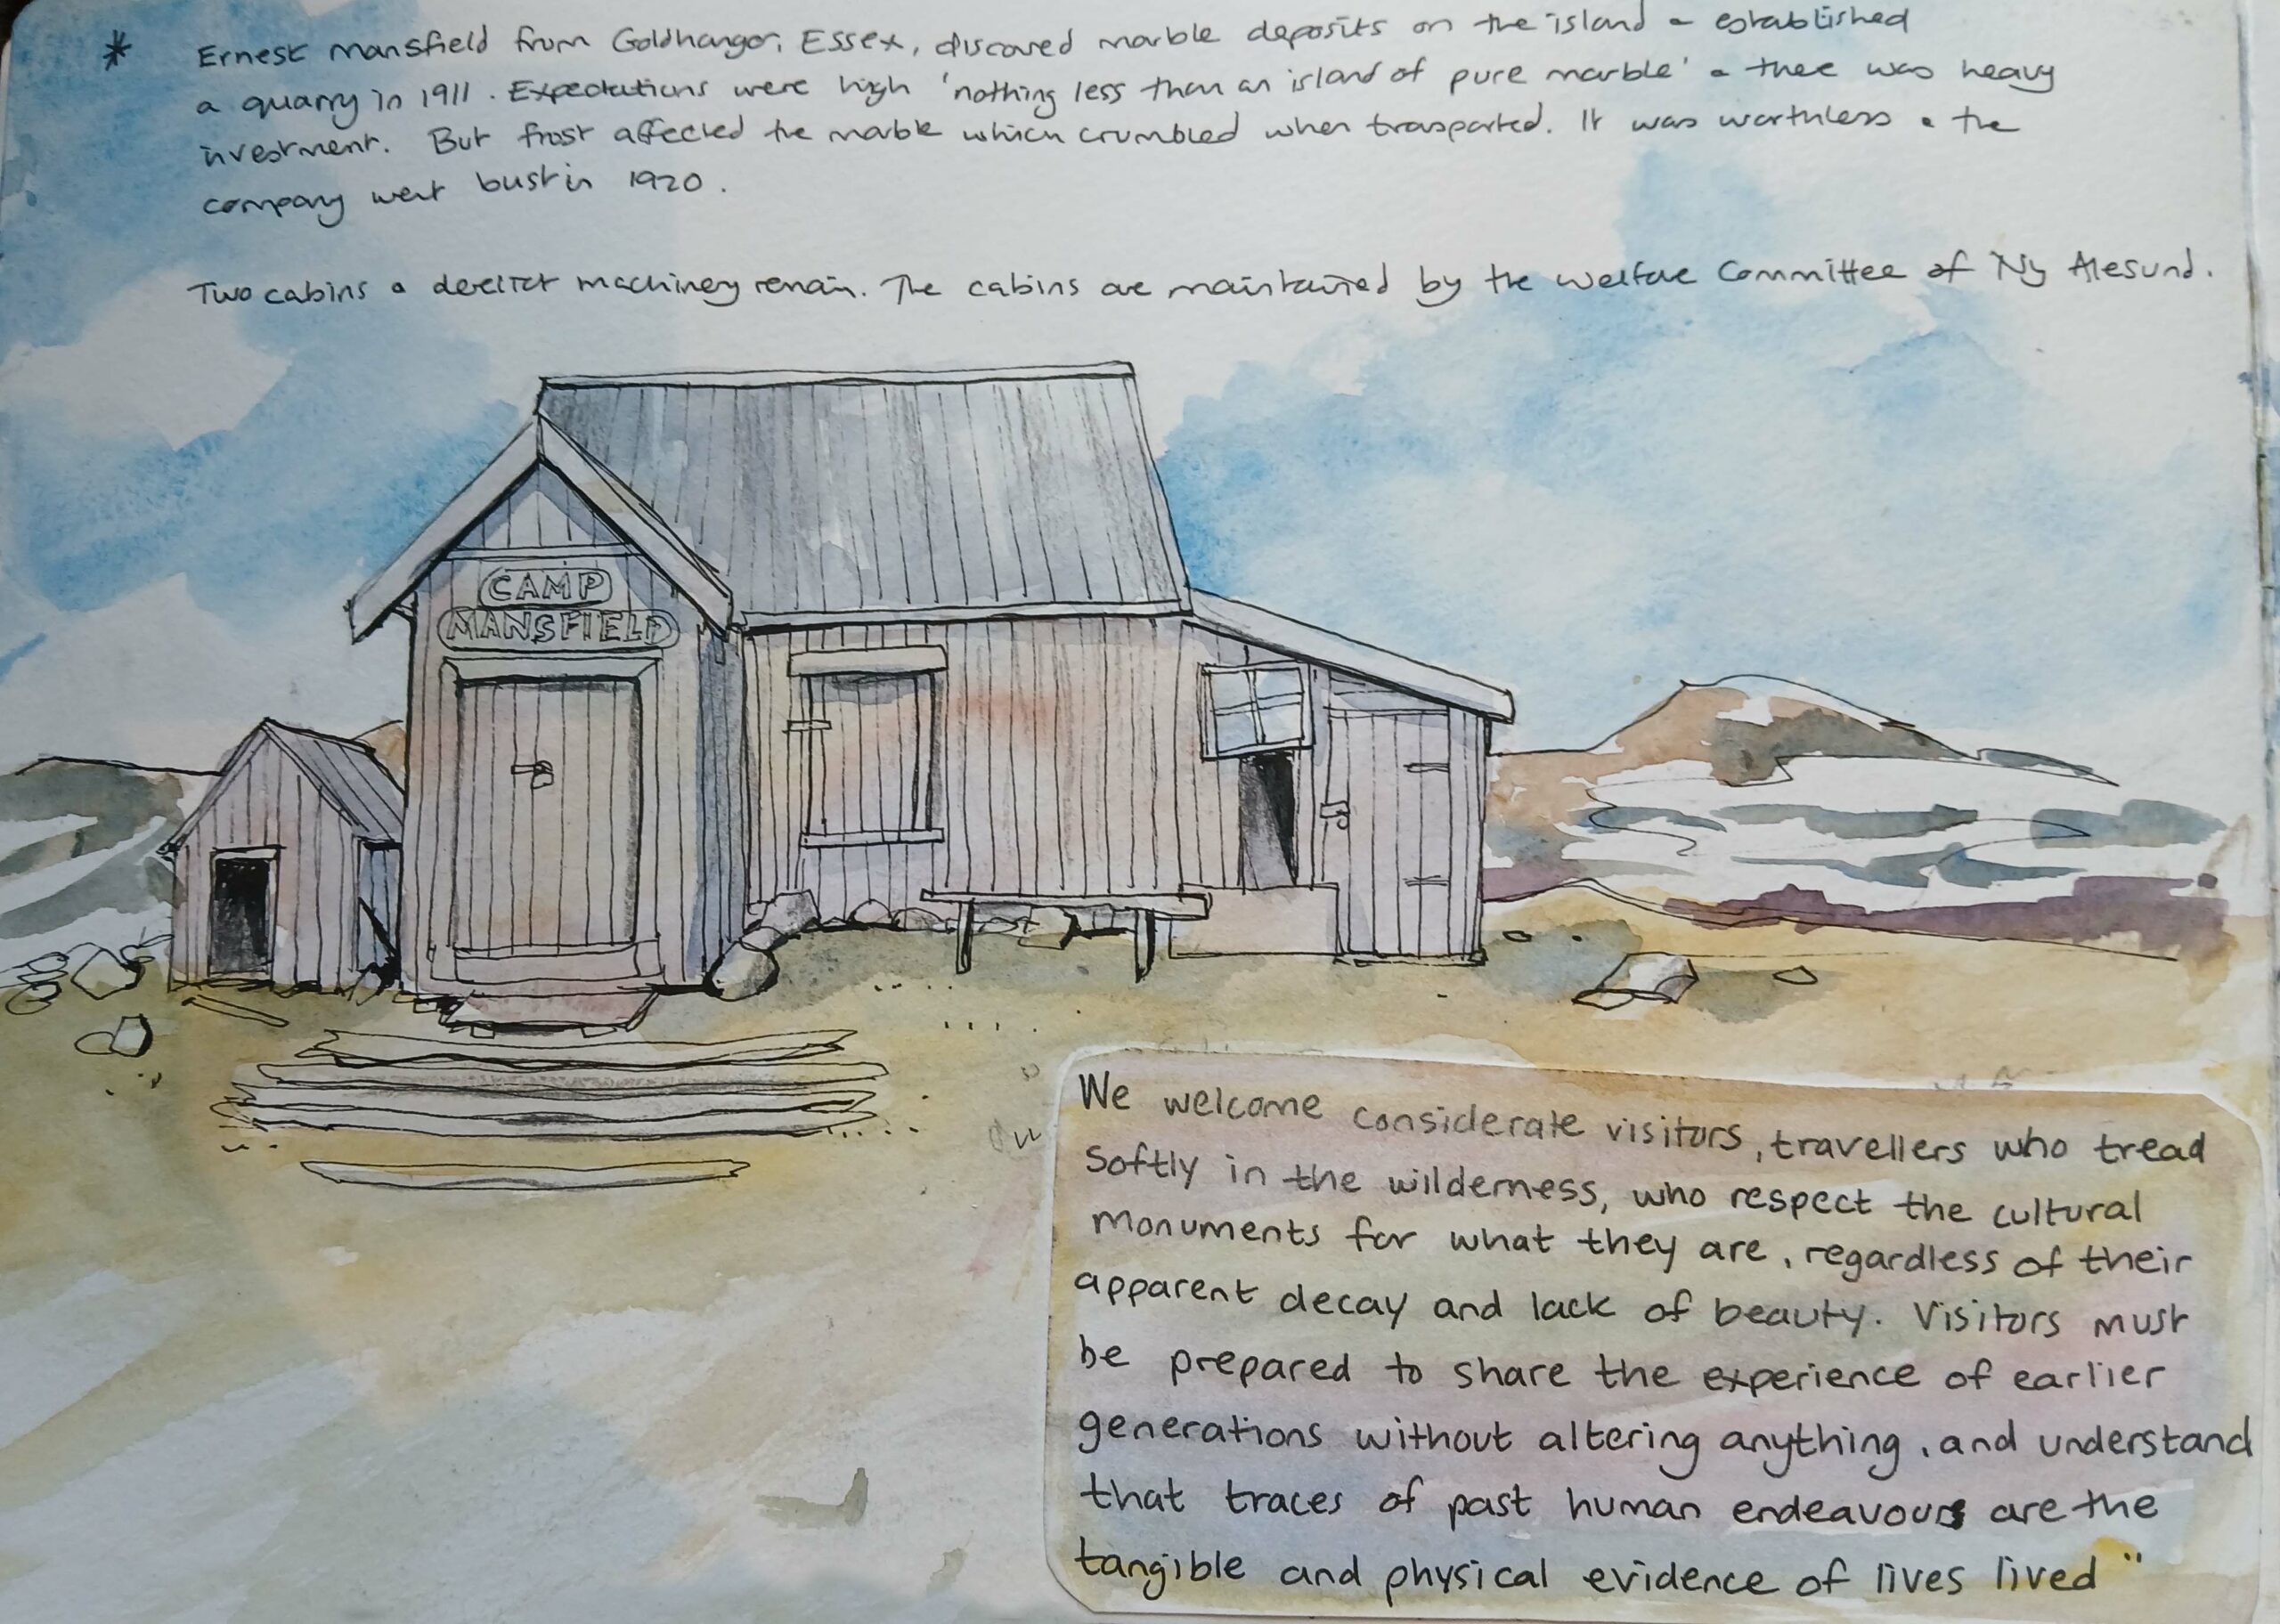 * Ernest Mansfield from Goldhanger, Essex, discovered marble deposits on the island & established
a quarry in 1911. Expectations were high 'nothing less than an island of pure marble' & there was heavy
investment. But frost affected the marble which crumbled when transported. It was worthless & the
company went bust in 1920.
Two cabins & derelict machinery remain. The cabins are maintained by the Welfare Committee of Ny Alesund.
CAMP
MANSFIELD
We welcome considerate visitors, travellers who tread
softly in the wilderness, who respect the cultural
monuments for what they are, regardless of their
apparent decay and lack of beauty. Visitors must
be prepared to share the experience of earlier
generations without altering anything, and understand
that traces of past human endeavours are the
tangible and physical evidence of lives lived"